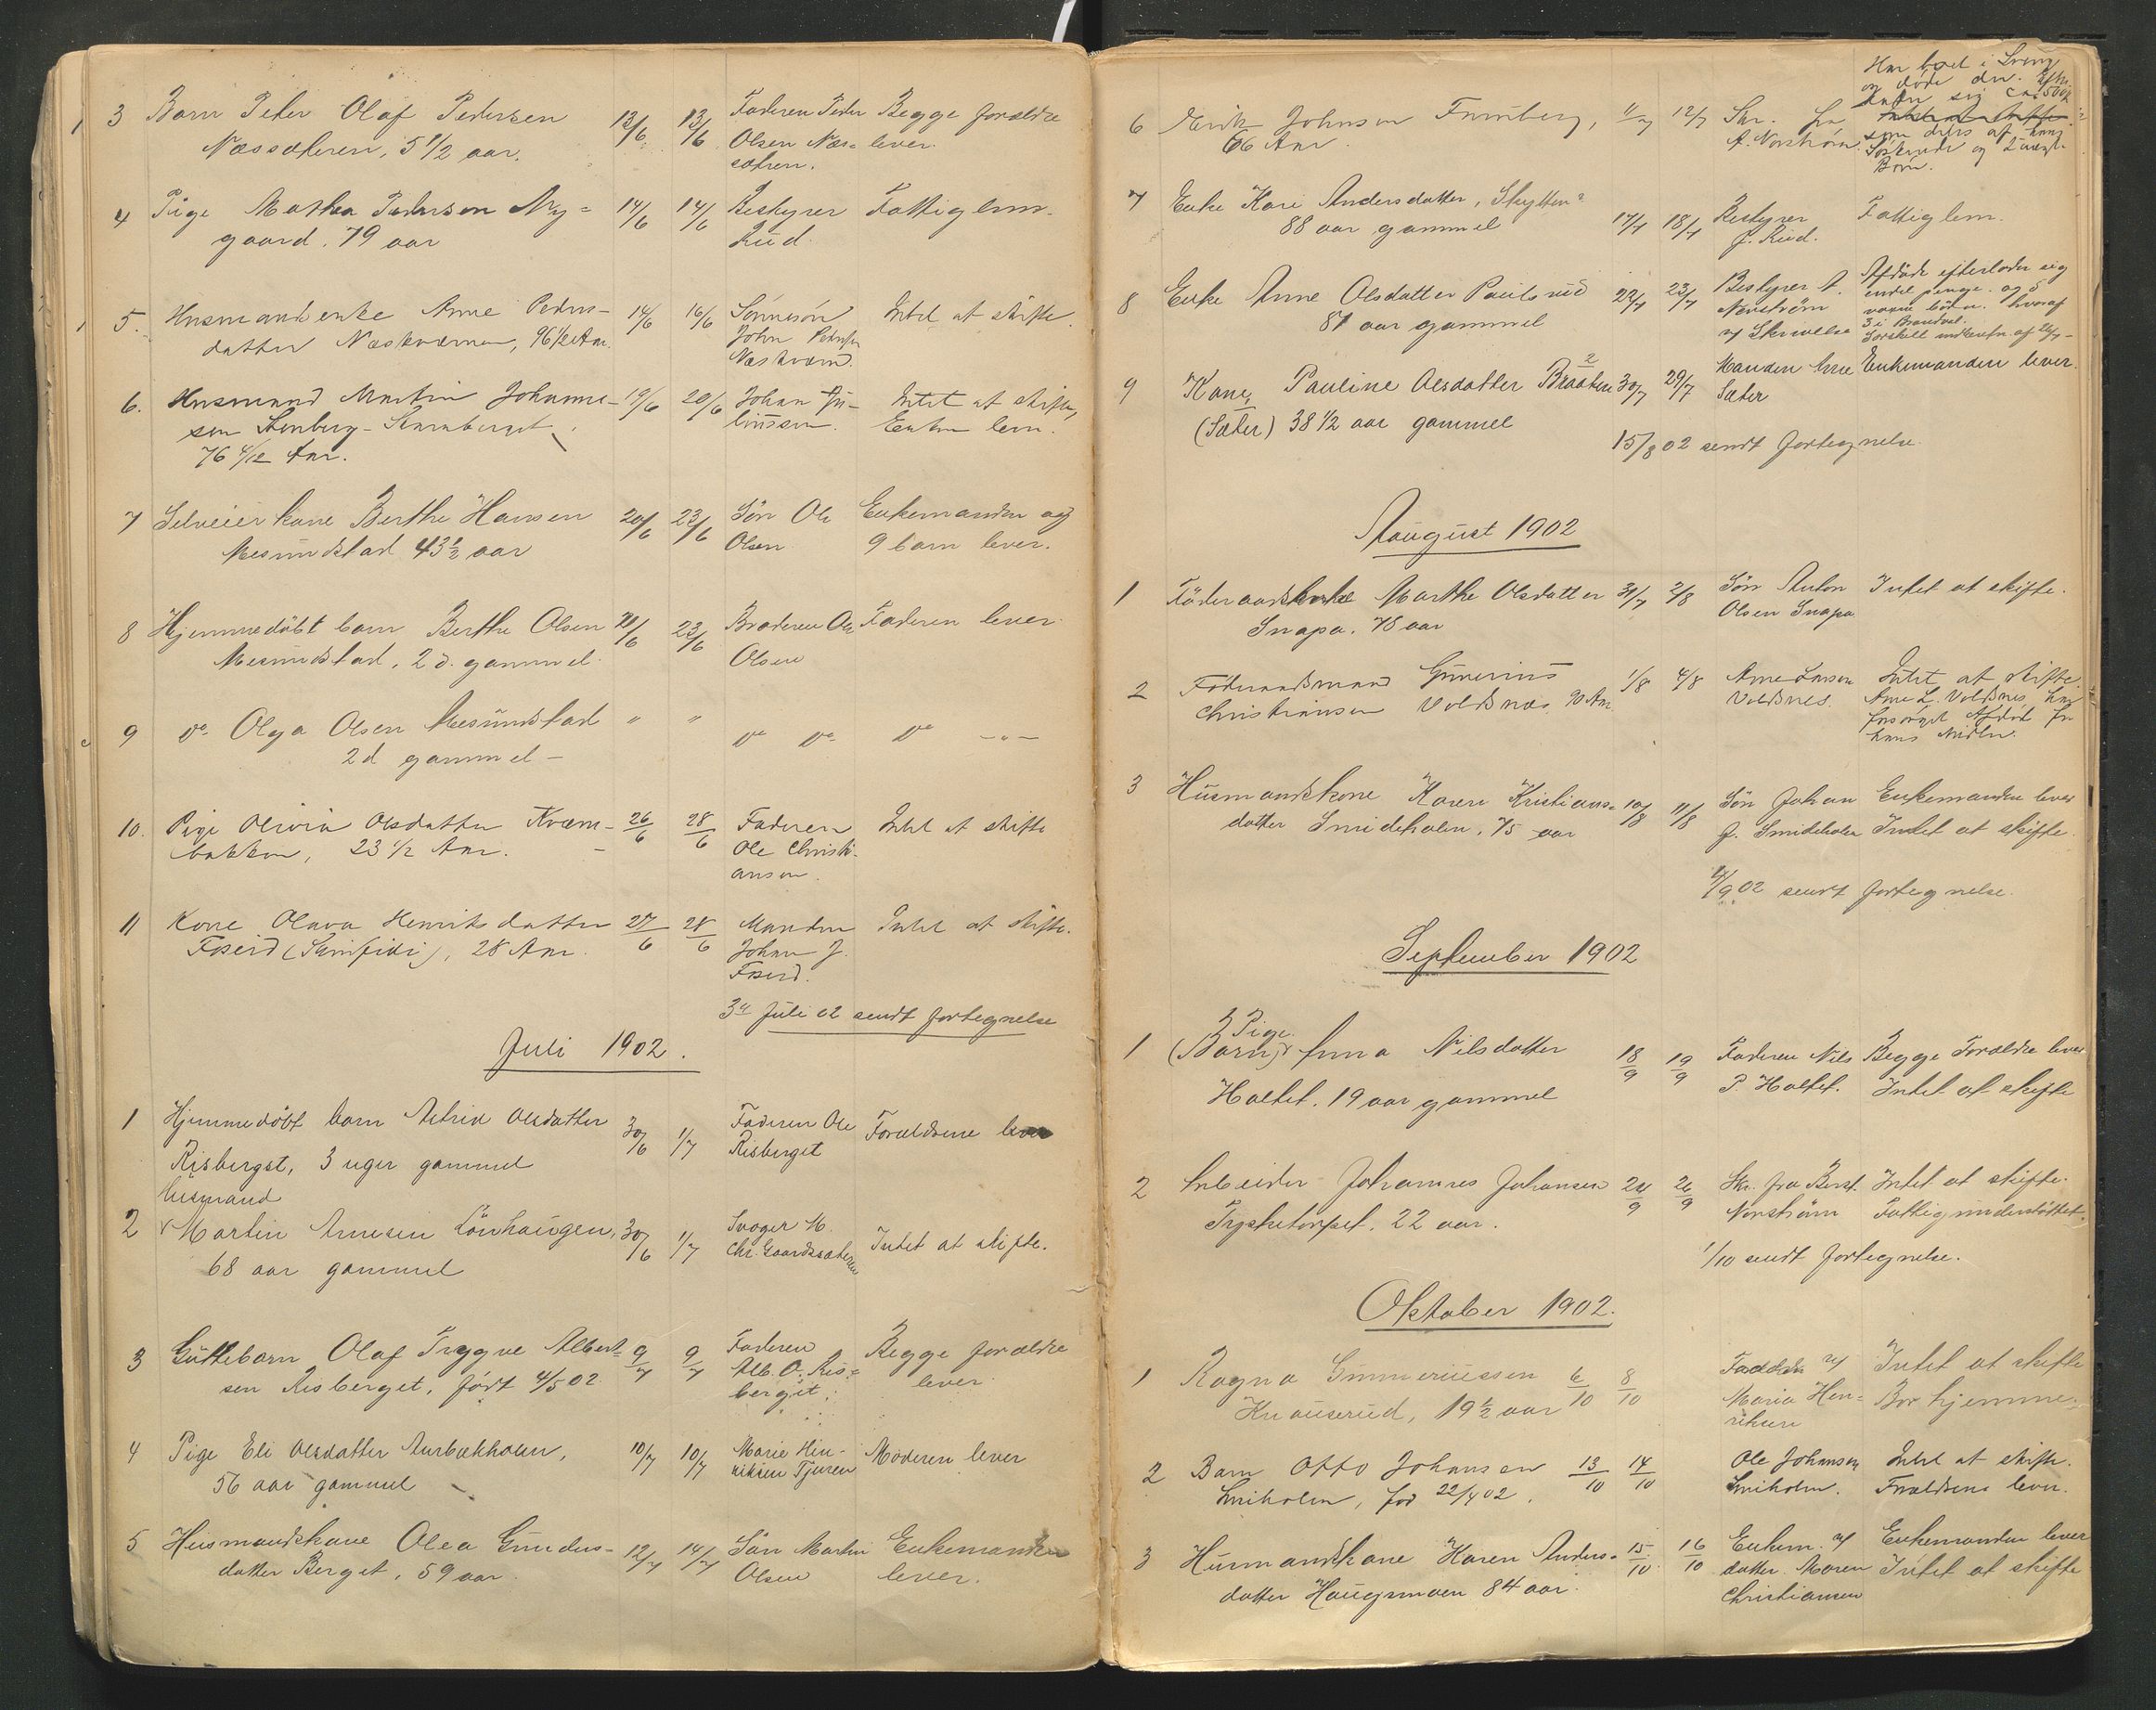 3 Barn Peter Olaf Pedersen 13/6 13/6 Faderen Peder Begge forældre
Næssæteren, 5 1/2 aar. Olsen Næs= lever.
sætren.
4 Pige Mathea Pedersen Ny= 14/6 14/6 Bestyrer Fattiglem.
gaard. 79 aar Rud.
5. Husmandsenke Anne Peders- 14/6 16/6 Sønnesøn Intet at skifte.
datter Næskværnen, 96 1/2 Aar. John Pedersen
Næskværnd.
6. Husmand Martin Johanne- 19/6 20/6 Johan Ju- Intet at skifte,
sen Stenberg- linssen. Enken lever.
76 4/12 Aar.
7 Selveierkone Berthe Hansen 20/6 23/6 Søn Ole Enkemanden og
Mesundstad 43 1/2 aar Olsen 9 barn lever.
8 Hjemmedøbt barn Berthe Olsen 20/6 23/6 Broderen Ole Faderen lever
Mesundstad, 2 d. gammel. Olsen
9 do Olga Olsen Mesundstad " " do do do -"-
2 d gammel -
10. Pige Olivia Olsdatter Kværn- 26/6 28/6 Faderen Intet at skifte
bakken, 23 1/2 Aar. Ole Christi-
ansen.
11 Kone Olava Henriksdatter 27/6 28/6 Manden Intet at skifte.
28 Aar. Johan J.
3die Juli 02 sendt fortegnelse
Juli 1902.
1 Hjemmedøbt barn Astrid Olsdatter 30/6 1/7 Faderen Ole Forældrene lever
Risberget, 3 uger gammel Risberget
Husmand
2 Martin Arnesen Lönhaugen, 30/6 1/7 Svoger M. Intet at skifte.
68 aar gammel Chr. Gaardsæteren
3 Guttebarn Olaf Trygve Albert= 9/7 9/7 Faderen Begge forældre
sen Risberget, født 4/5 02 Alb. O. Ris= lever
berget.
4 Pige Eli Olsdatter Aurbækholen, 10/7 10/7 Marie Hen- Moderen lever
56 aar gammel riksen Tjuren
5 Husmandskone Olea Gunders- 12/7 14/7 Søn Martin Enkemanden
datter Berget, 59 aar. Olsen lever.
Har boet i
og døde der. Efter
lader sig ca. 500 k
6 Erik Johnsen Furuberg, 11/7 12/7 Skr. fra
66 Aar. A. Norstrøm. som deles af hans
Søskende og
Børn.
7 Enke Kari Andersdatter, Skytten? 17/7 18/7 Bestyrer Fattiglem.
88 aar gammel J. Rud.
8 Enke Anne Olsdatter Paulsrud 22/7 23/7 Bestyrer A. Afdøde efterlader sig
81 aar gammel Norstrøm endel penge. og 5
v/ Skrivelse voxne børn. hvoraf
3 i Brandval.
9 Kone, Pauline Olsdatter Braaten 30/7 29/7 Manden Enkemanden lever.
(Sæter) 38 1/2 aar gammel Sæter
15/8 02 sendt fortegnelse.
August 1902
1 Föderaadsenke Marthe Olsdatter 31/7 2/8 Søn Anton Intet at skifte.
Snapa. 78 aar Olsen Snapa
2 Föderaadsmand Gunerius 1/8 4/8 Arne Larsen Intet at skifte.
Christiansen Voldsnes, 90 Aar. Voldsnes. Arne L. Voldsnes har
forsørget Afdøde for
hans Midler.
3 Husmandskone Karen Kristians= 10/8 11/8 Søn Johan Enkemanden lever
datter Smideholen. 75 aar J. Smideholen Intet at skifte.
4/9 02 sendt fortegnelse.
September 1902
Pige.
1 (Barn) Anna Nilsdatter 18/9 19/9 Faderen Nils Begge Forældre lever
Holtet. 19 aar gammel P. Holtet. Intet at skifte
2 Arbeider Johannes Johansen 24/9 26/9 Skr. fra Best. Intet at skifte.
Trysketorpet. 22 aar. Norstrøm Fattigunderstøttet.
1/10 sendt fortegnelse.
Oktober 1902.
1 Ragna Gunneriussen 6/10 8/10 Faderen v/ Intet at skifte
Knauserud, 19 1/2 aar Maria Hen= Bor hjemme.
riksen
2 Barn Otto Johansen 13/10 14/10 Ole Johansen Intet at skifte.
Smiholen, fød 22/4 02. Smiholen. Forældrene lever.
3 Husmandskone Karen Anders= 15/10 16/10 Enkem. v/ Enkemanden lever
datter Haugsmoen 84 aar. datter Maren Intet at skifte
Christiansen